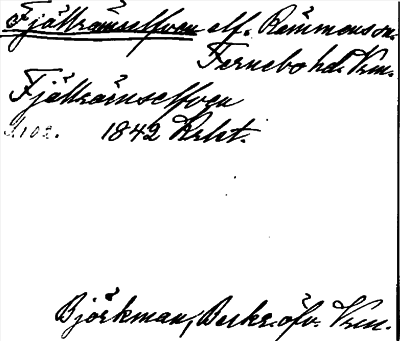 Fjällrämselfven elf. Rämmen sn.
Fernebo hd. Vrm.
Fjällrämselfven
s. 102. 1842 Rekt.
Björkman, Beskr. öfv. Vrm.